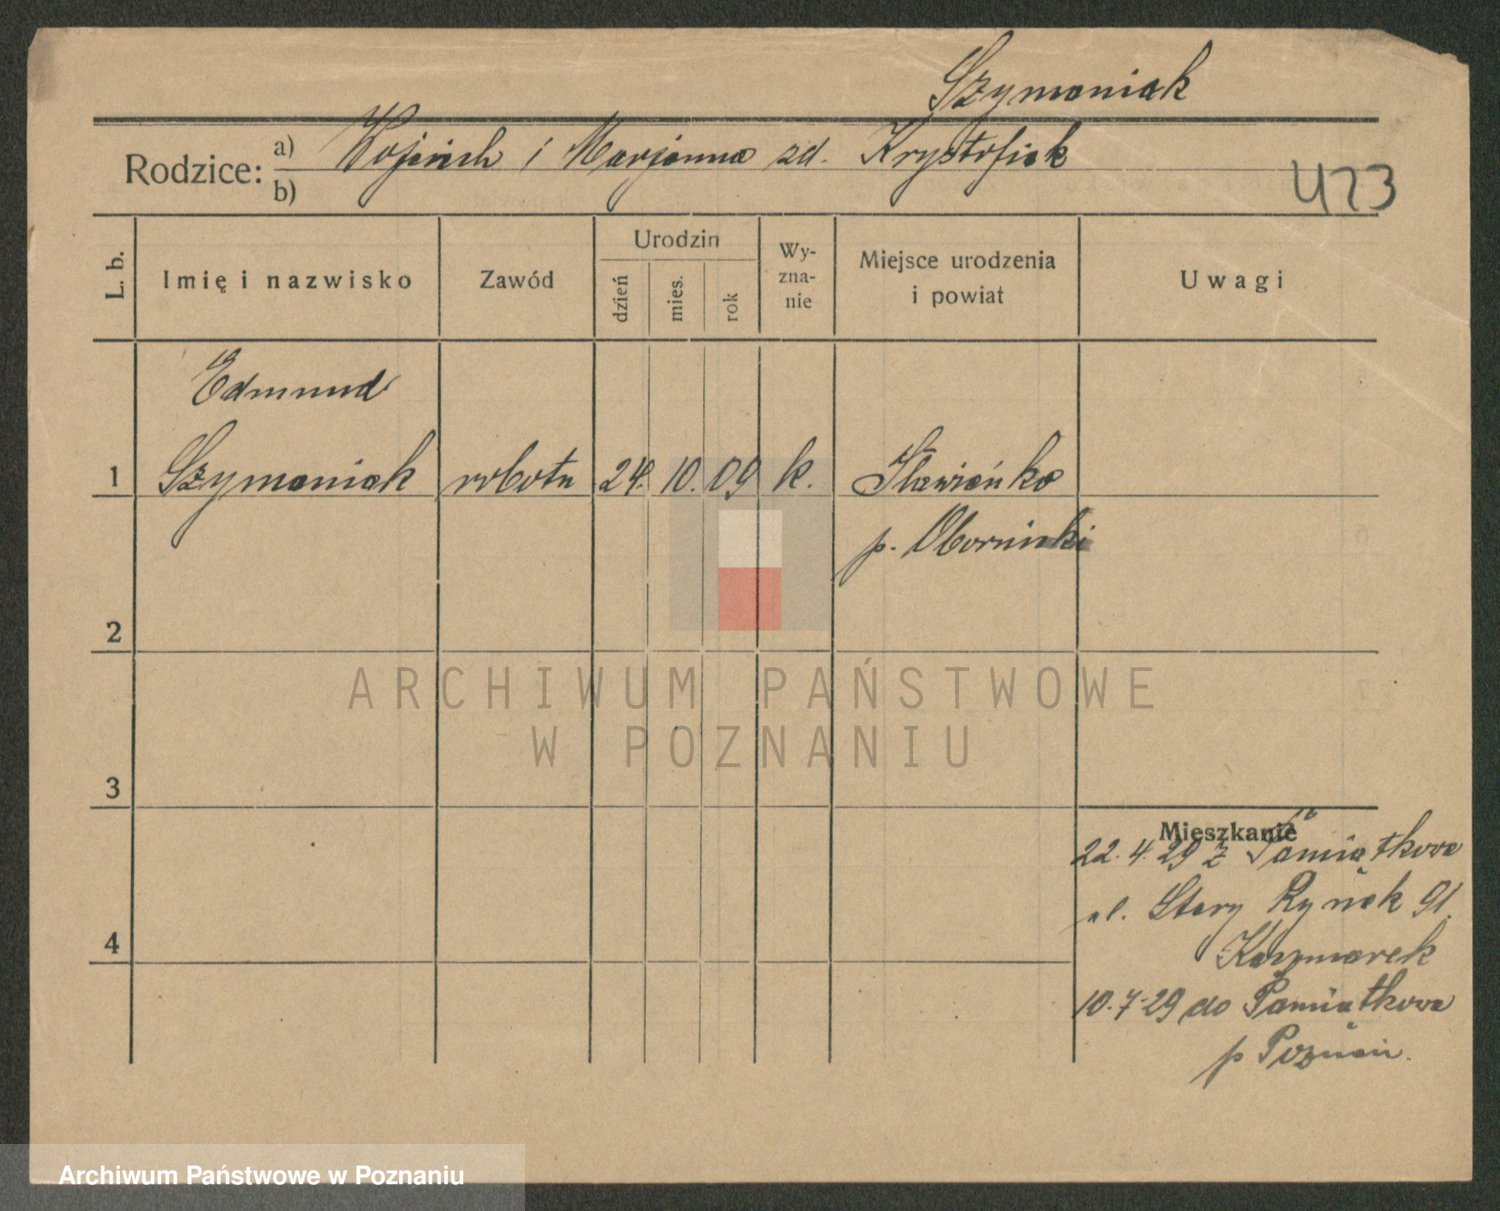 Szymaniak
Rodzice: a) Wojciech i Marjanna zd. Krystofiak
b)
473
L. b.
Imię i nazwisko
Zawód
Urodzin
dzień
mies.
rok
Wy-
zna-
nie
Miejsce urodzenia
i powiat
Uwagi
Edmund
1 Szymaniak robotn 24. 10. 09 k. Sławienko
p. Obornicki
2
ARCHIWUM PAŃSTWOWE
W POZNANIU
3
Mieszkanie
22. 4. 29 z Pamiątkowa
ul. Stary Rynek 91.
4
Kaczmarek
10. 7. 29 do Pamiątkowa
p Poznań.
Archiwum Państwowe w Poznaniu